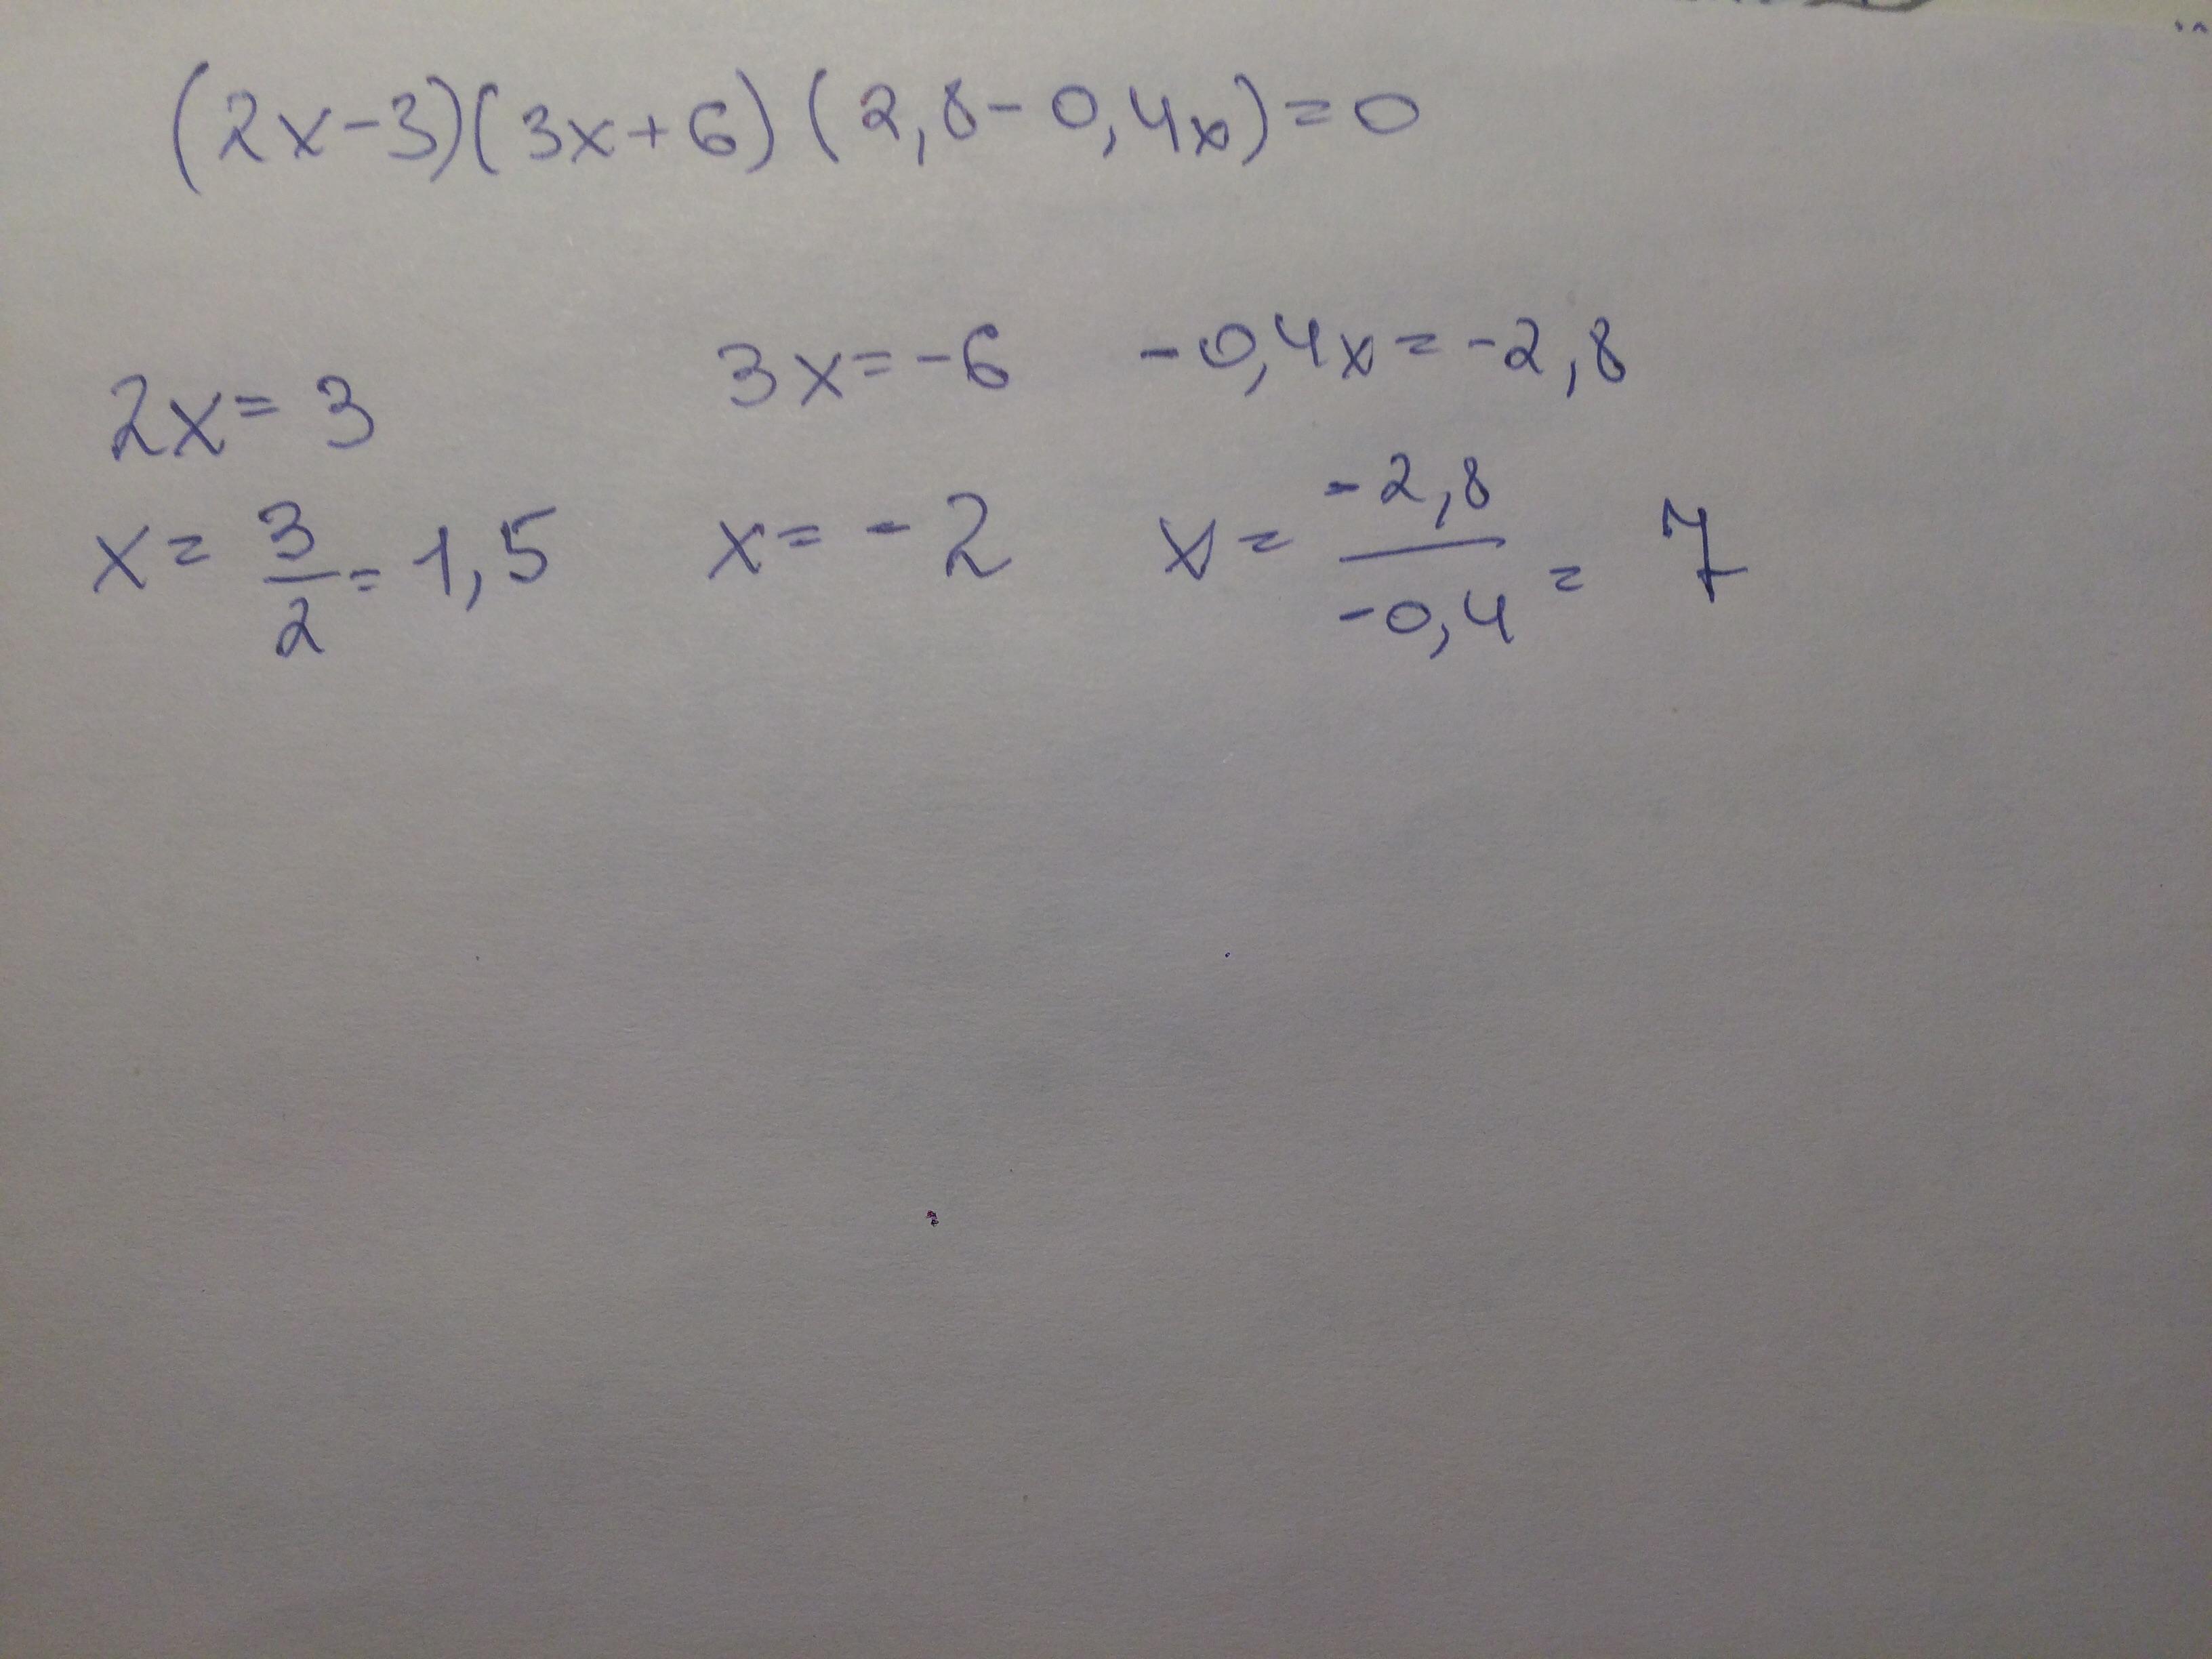 (2x-3)(3x+6)(2,8-0,4x)=0
2x=3 3x=-6 -0,4x=-2,8
x=3/2=1,5 x=-2 x=-2,8/-0,4=7